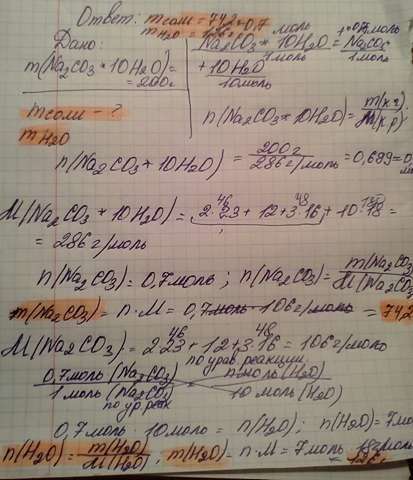 Ответ: m соли = 74,2
m H₂O = 126 г
Дано:
m(Na₂CO₃ * 10H₂O) =
= 200г
m соли - ?
m H₂O
0,7 моль
Na₂CO₃ * 10H₂O = Na₂CO₃
1 моль 1 моль
+ 10H₂O
10 моль
n(Na₂CO₃ * 10H₂O) =
n(Na₂CO₃ * 10H₂O) = 200г / 286 г/моль = 0,699 =
M(Na₂CO₃ * 10H₂O) = 2·23 + 12 + 3·16 + 10·18 =
46 48 180
= 286 г/моль
n(Na₂CO₃) = 0,7 моль ; n(Na₂CO₃) = m(Na₂CO₃) / M(Na₂CO₃)
m(Na₂CO₃) = n·M = 0,7 моль · 106 г/моль = 74,2
M(Na₂CO₃) = 2·23 + 12 + 3·16 = 106 г/моль
46 48
по урав. реакции
0,7 моль (Na₂CO₃) / 1 моль (Na₂CO₃) = n моль (H₂O) / 10 моль (H₂O)
по ур. реак
0,7 моль · 10 моль = n(H₂O) ; n(H₂O) = 7 мол
n(H₂O) = m(H₂O) / M(H₂O) , m(H₂O) = n·M = 7 моль · 18 г/моль
= 126